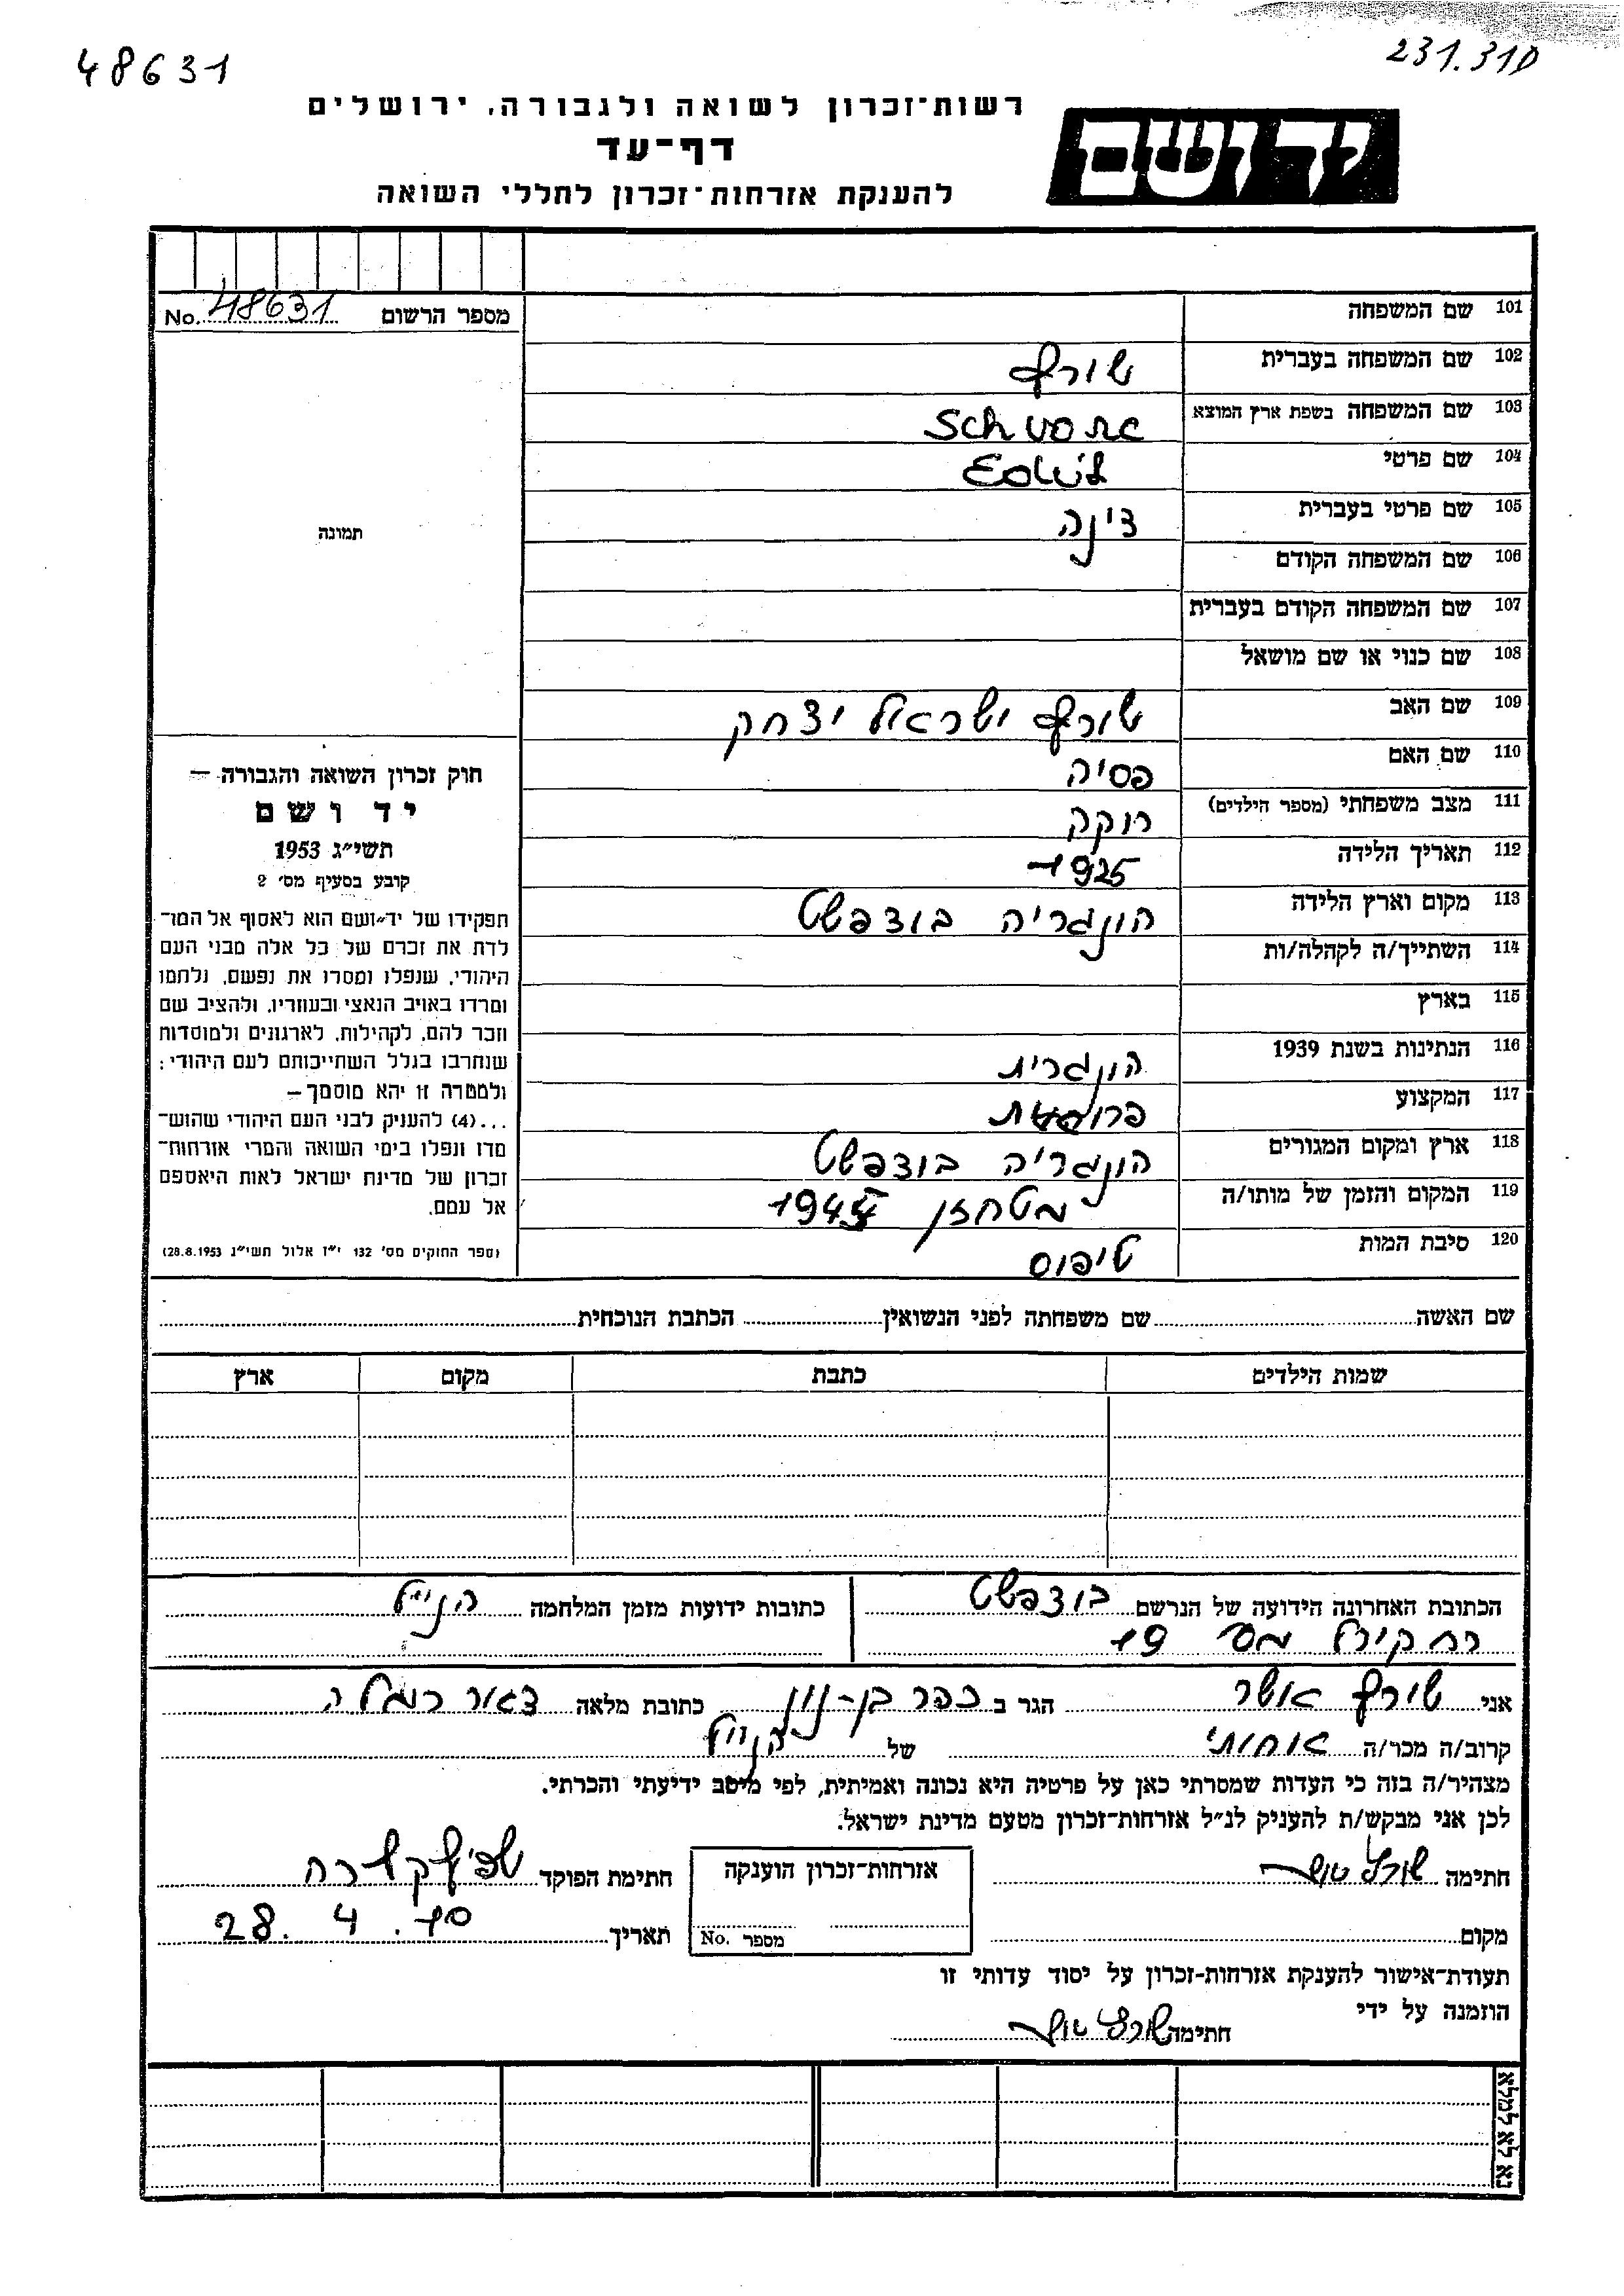 48631
231.310
רשות-זכרון לשואה ולגבורה, ירושלים
דף-עד
להענקת אזרחות-זכרון לחללי השואה
יד ושם
מספר הרשום No. 48631
תמונה
חוק זכרון השואה והגבורה —
יד ושם
תשי״ג 1953
קובע בסעיף מס׳ 2
תפקידו של יד-ושם הוא לאסוף אל המו-
לדת את זכרם של כל אלה מבני העם
היהודי, שנפלו ומסרו את נפשם, נלחמו
ומרדו באויב הנאצי ובעוזריו, ולהציב שם
וזכר להם, לקהילות, לארגונים ולמוסדות
שנחרבו בגלל השתייכותם לעם היהודי:
ולמטרה זו יהא מוסמך —
...(4) להעניק לבני העם היהודי שהוש-
מדו ונפלו בימי השואה והמרי אזרחות-
זכרון של מדינת ישראל לאות היאספם
אל עמם.
(ספר החוקים מס׳ 132 י״ז אלול תשי״ג 28.8.1953)
101 שם המשפחה
102 שם המשפחה בעברית שורץ
103 שם המשפחה בשפת ארץ המוצא
104 שם פרטי
105 שם פרטי בעברית דינה
106 שם המשפחה הקודם
107 שם המשפחה הקודם בעברית
108 שם כנוי או שם מושאל
109 שם האב שורץ ישראל יצחק
110 שם האם פסיה
111 מצב משפחתי (מספר הילדים) רוקה
112 תאריך הלידה 1925
113 מקום וארץ הלידה הונגריה בודפשט
114 השתייך/ה לקהלה/ות
115 בארץ
116 הנתינות בשנת 1939 הונגרית
117 המקצוע
118 ארץ ומקום המגורים הונגריה בודפשט
119 המקום והזמן של מותו/ה
120 סיבת המות טיפוס
שם האשה שם משפחתה לפני הנשואין הכתבת הנוכחית
שמות הילדים כתבת מקום ארץ
הכתובת האחרונה הידועה של הנרשם בודפשט
רח קירל מס 19
כתובות ידועות מזמן המלחמה הנ״ל
אני שורץ אשר הגר ב כפר בן-נון כתובת מלאה דאור רמלה
קרוב/ה מכר/ה אחותי של הנ״ל
מצהיר/ה בזה כי העדות שמסרתי כאן על פרטיה היא נכונה ואמיתית, לפי מיטב ידיעתי והכרתי.
לכן אני מבקש/ת להעניק לנ״ל אזרחות-זכרון מטעם מדינת ישראל.
חתימה
אזרחות-זכרון הוענקה
מספר No.
חתימת הפוקד
מקום
תאריך 28. 4. 70
תעודת-אישור להענקת אזרחות-זכרון על יסוד עדותי זו
הוזמנה על ידי
חתימה
נא לא למלא